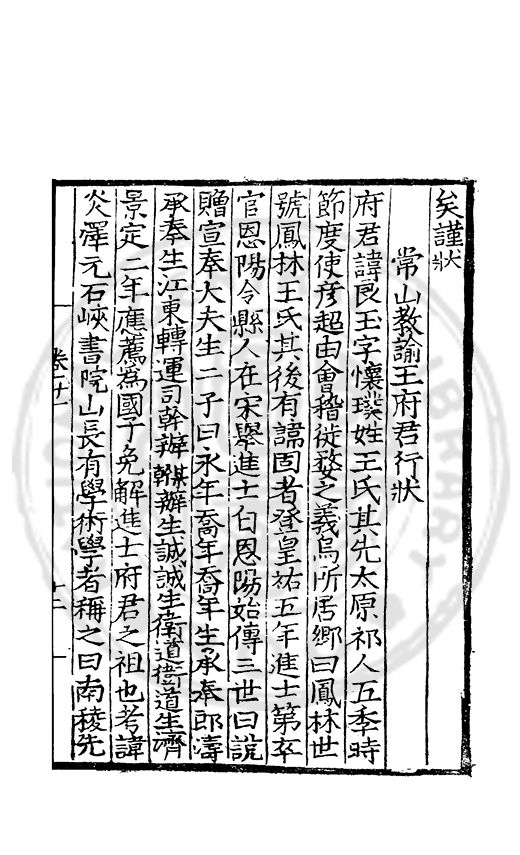 矣謹狀
常山教諭王府君行狀
府君諱良玉字懷璞姓王氏其先太原祁人五季時
節度使彦超由會稽徙婺之義烏所居鄉曰鳳林世
號鳳林王氏其後有諱固者登皇祐五年進士第卒
官恩陽令縣人在宋舉進士自恩陽始傳三世曰說
贈宣奉大夫生二子曰永年喬年喬年生承奉郎濤
承奉生江東轉運司幹辦棋幹辦生誠誠生衛道衛道生䃜
景定二年應薦為國子免解進士府君之祖也考諱
炎澤元石峽書院山長有學術學者稱之曰南稜先
卷二十
十二